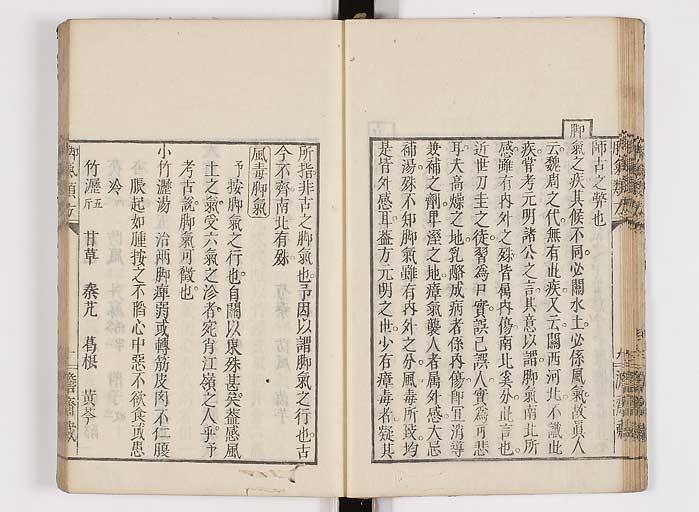 師古之弊也
脚氣之疾其候不同必關水土必係風氣故眞人
云魏周之代無有此疾又云關西河北不識此
疾嘗考元明諸公之言其意以謂脚氣南北所
感雖有内外之殊皆屬内傷南北奚分此言也
近世刀圭之徒習爲口實誤己誤人實爲可悲
耳夫高燥之地乳酪成病者係内傷卽宜消導
兼補之劑卑溼之地瘴氣襲人者属外感大忌
補湯殊不知脚氣雖有内外之分風毒所致均
是皆外感耳蓋方元明之世少有瘴毒者疑其
所指非古之脚氣也予因以謂脚氣之行也古
今不齊南北有殊
風毒脚氣
予按脚氣之行也自關以東殊甚矣蓋感風
土之氣受六氣之沴者宛肖江嶺之人乎予
考古説脚氣可徴也
小竹瀝湯 治兩脚痺弱或轉筋皮肉不仁腹
脹起如腫按之不䧟心中惡不欲食或患
冷
竹瀝五斤 甘草 秦艽 葛根 黄芩